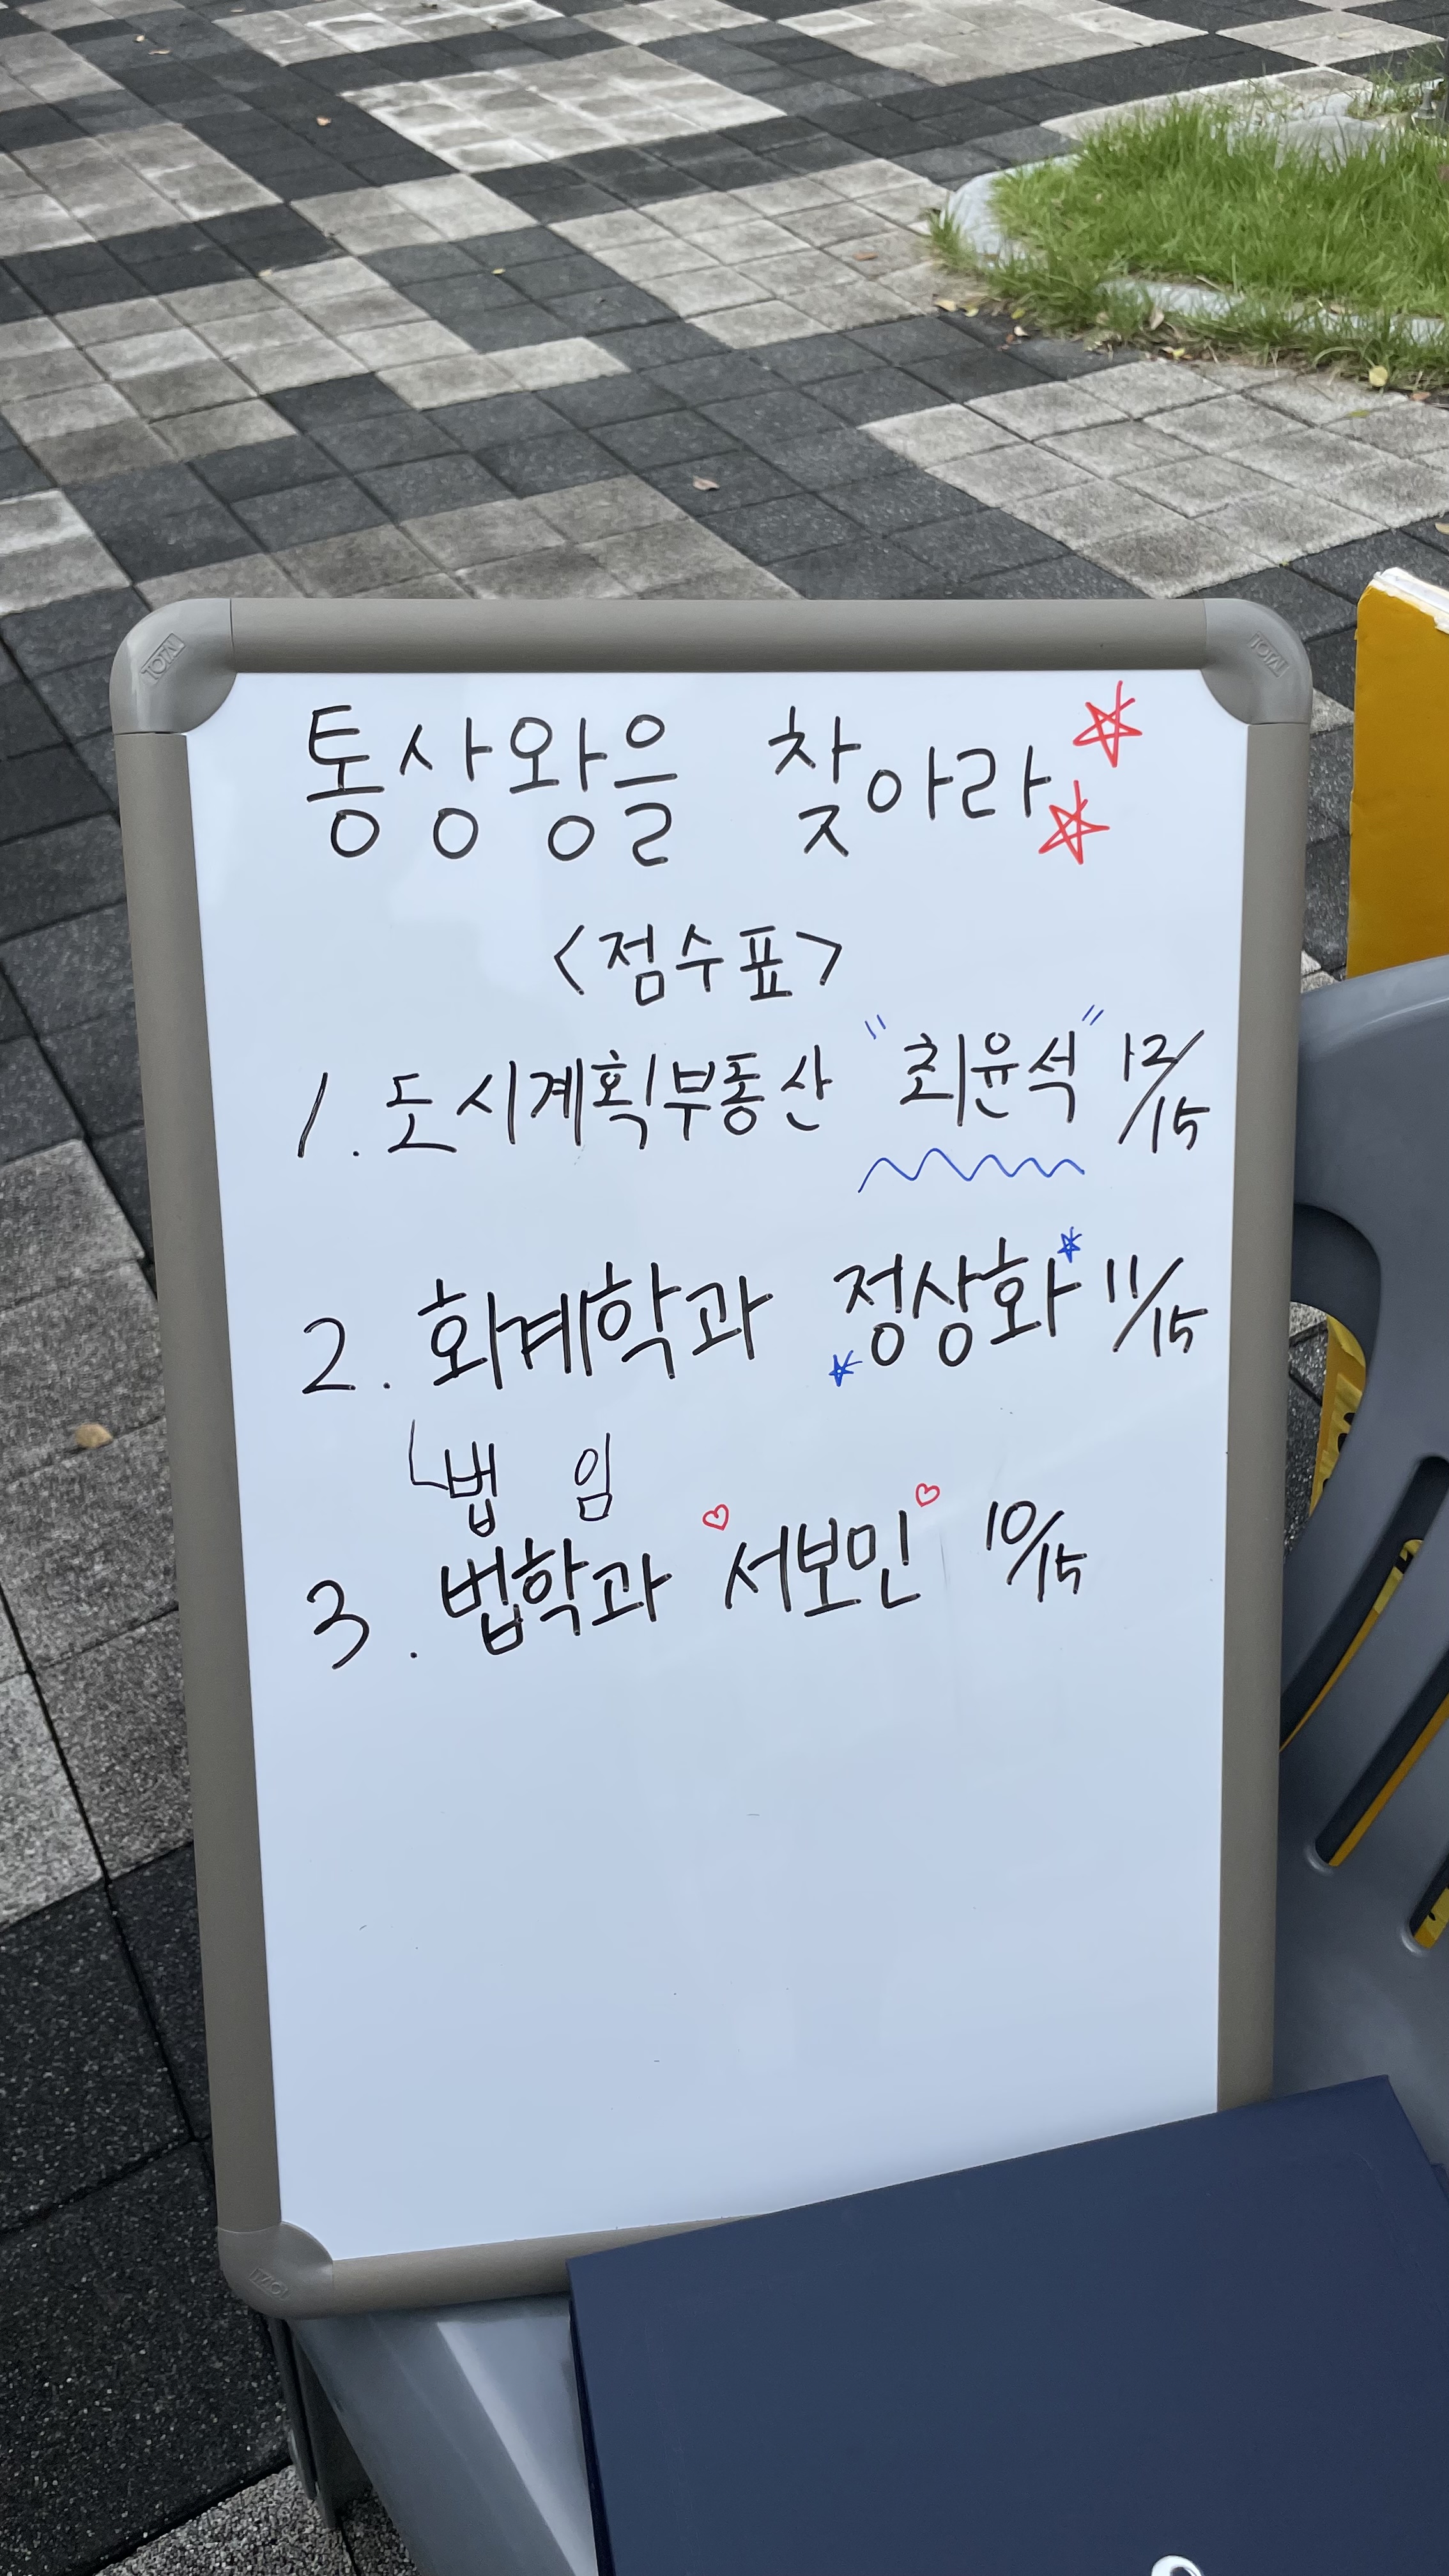 통상왕을 찾아라
<점수표>
1. 도시계획부동산 "최윤석" 12/15
2. 회계학과 정상화 11/15
법 임
3. 법학과 서보민 10/15
TOTAL
TOTAL